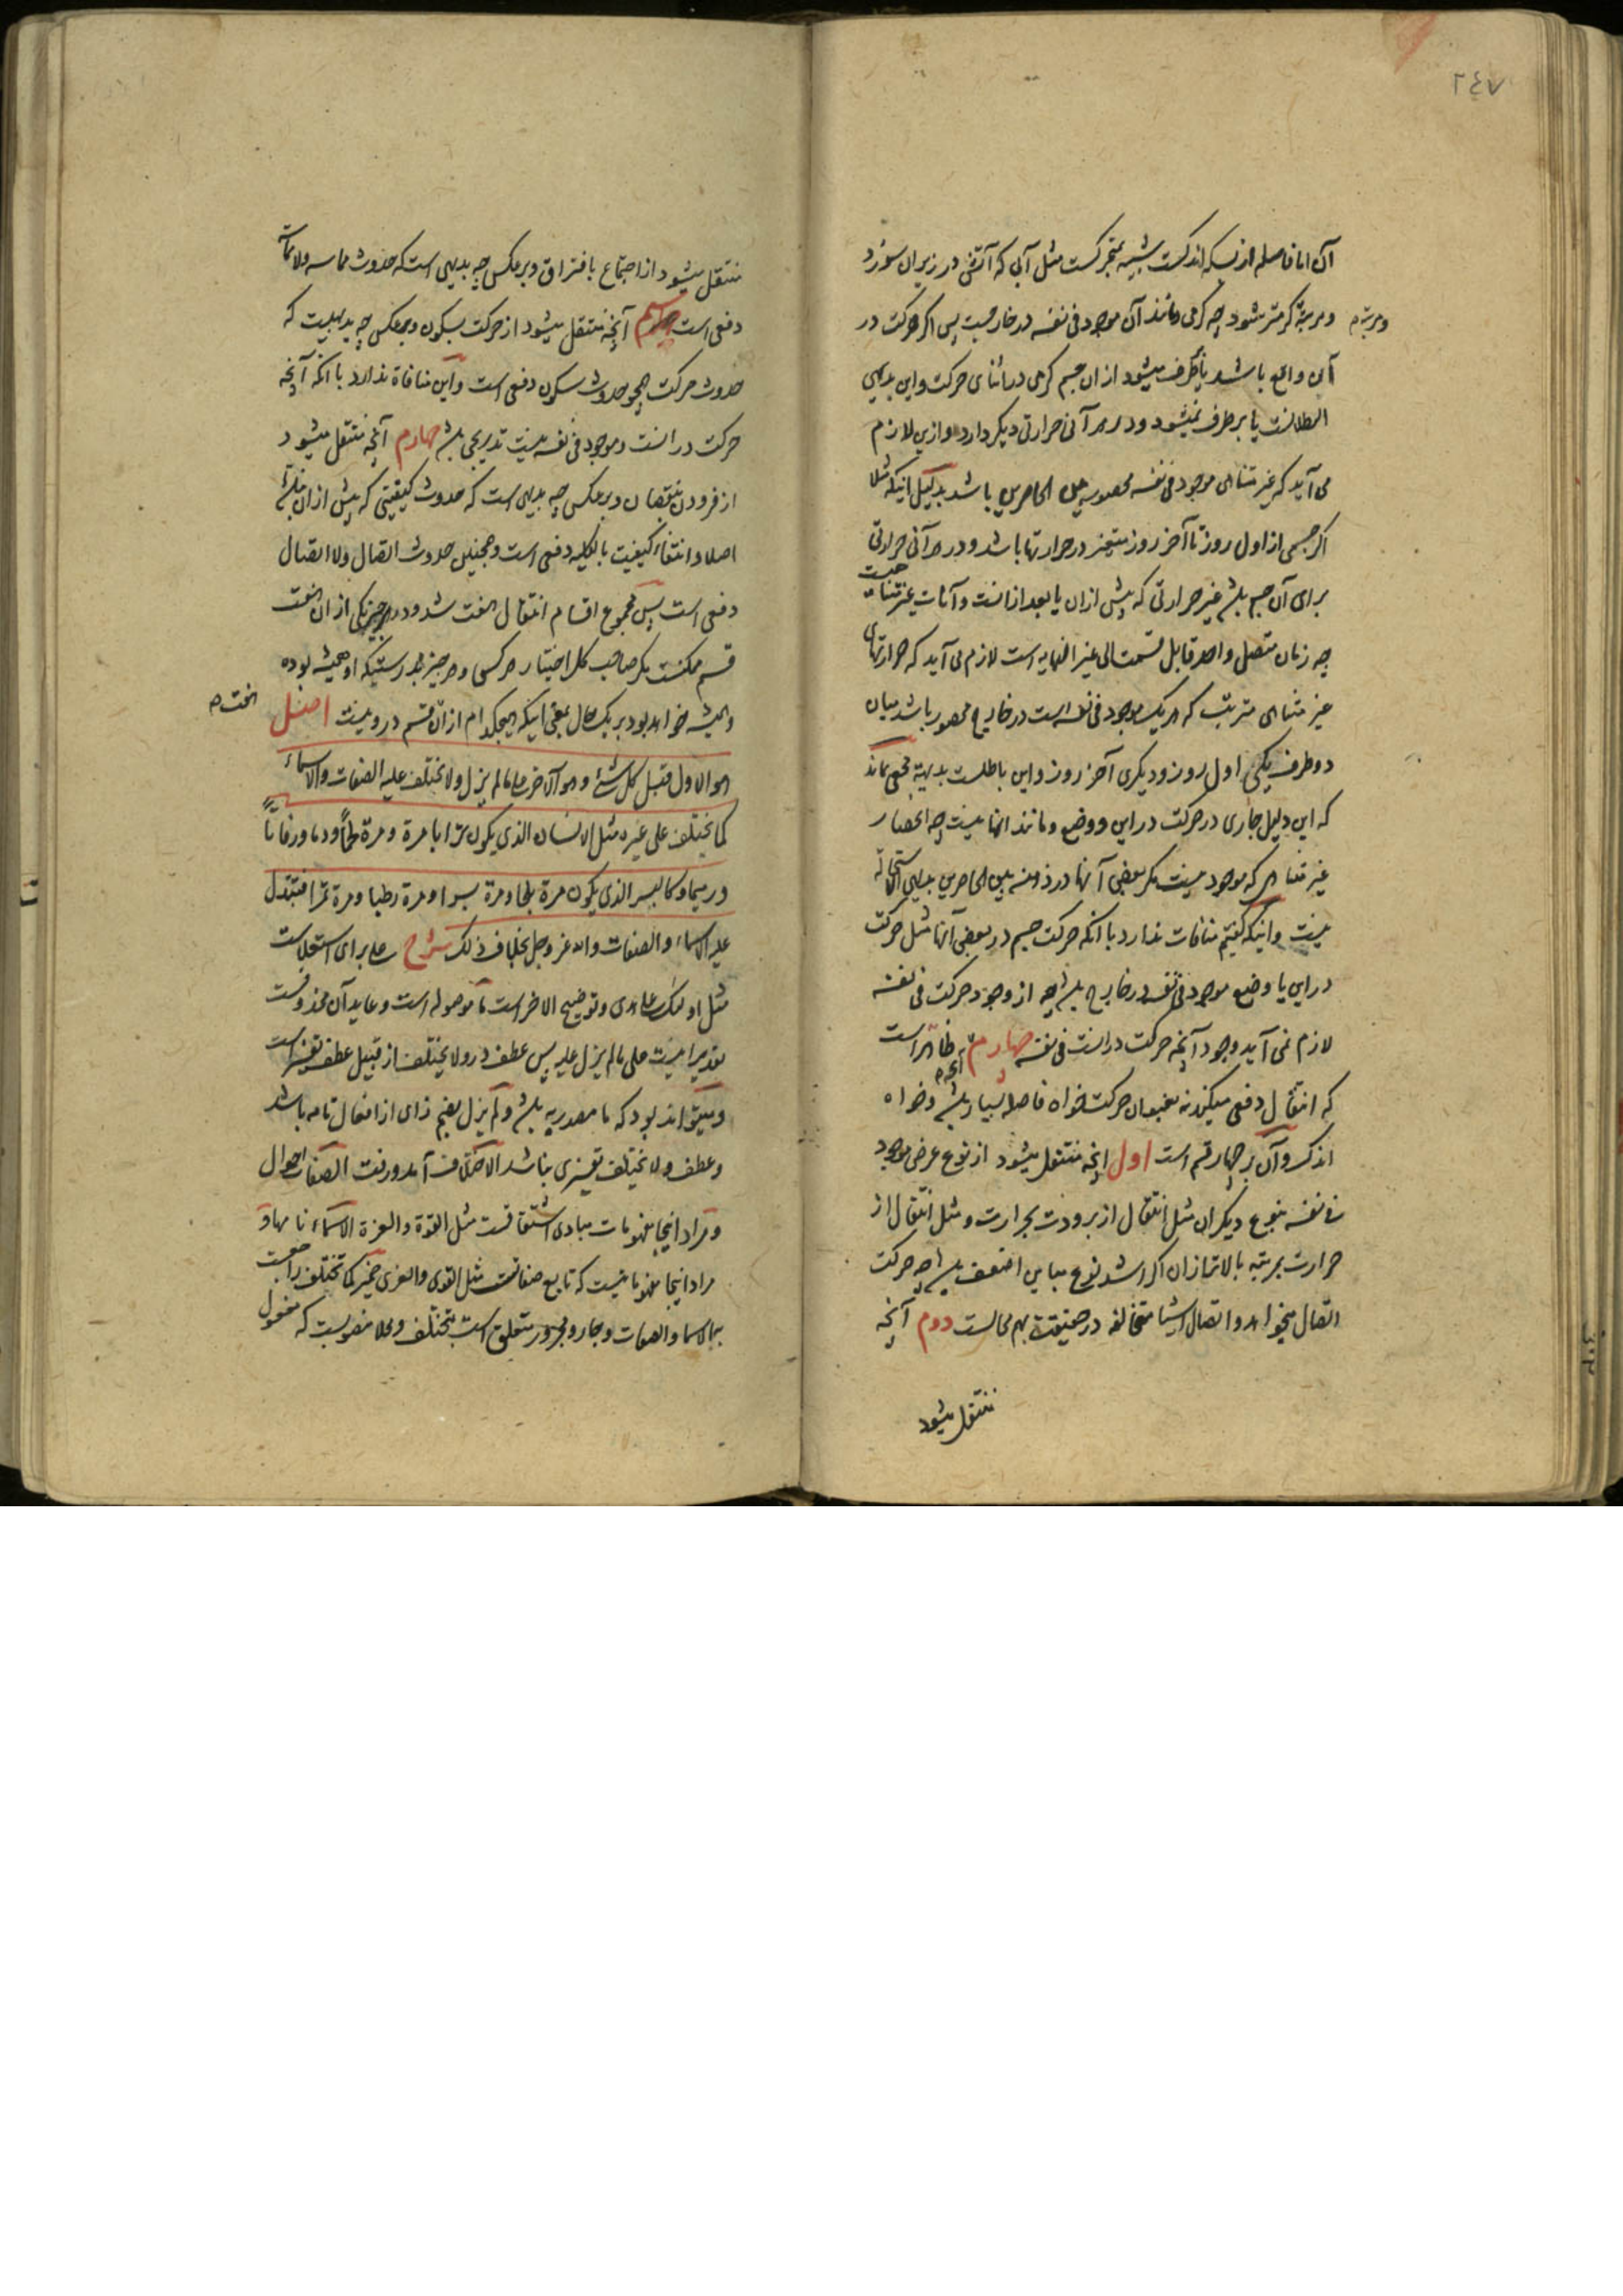 ٢٤٧
آن اما فاصله از بسکه اندکست شبیه بمتحرکست مثل آبی که آتشی در زیر آن سوزد
و مرتبهٔ گرمتر میشود چه گرمی و مانند آن موجود فی نفسه در خارجست پس اگر حرکت در
و مرتبه م
آن واقع باشد یا برطرف میشود از آن جسم گرمی در اثنای حرکت و این بدیهی
البطلانست یا برطرف نمیشود و در هر آنی حرارتی دیگر دارد و ازین لازم
می آید که غیر متناهی موجود فی نفسه محصور بین الحاصرین باشد بدلیل اینکه مثلا
اگر جسمی از اول روز تا آخر روز متغیر در حرارتها باشد و در هر آنی حرارتی
برای آن جسم باشد غیر حرارتی که پیش از آن یا بعد از آنست و آنات غیر متناهیست
چه زمان متصل واحد قابل قسمت الی غیر النهایه است لازم می آید که حرارتهای
غیر متناهی مترتب که هر یک موجود فی نفسه است در خارج محصور باشد میان
دو طرف یکی اول روز و دیگری آخر روز و این باطلست بدیهة مخفی نماند
که این دلیل جاری در حرکت در این و وضع و مانند آنها نیست چه انحصار
غیر متناهی که موجود نیست مگر بعضی آنها در ذهن بین الحاصرین بدیهی الاستحالة
نیست و اینکه گفتیم منافات ندارد با آنکه حرکت جسم در بعضی آنها مثل حرکت
در این یا وضع موجود فی نفسه در خارج باشد چه از وجود حرکت فی نفسه
لازم نمی آید وجود آنچه حرکت در آنست فی نفسه چهارم ظاهر است
آنچه م
که انتقال دفعی میکند نه بعنوان حرکت خواه فاصله بسیار باشد و خواه
اندک و آن بر چهار قسم است اول آنچه منتقل میشود از نوع عرض موجود
فی نفسه بنوع دیگر آن مثل انتقال از برودت بحرارت و مثل انتقال از
حرارت بمرتبه بالاتر از آن اگر اشد نوع مباین اضعف باشد چه حرکت
اتصال میخواهد و اتصال اشیا متخالفه در حقیقت بهم محالست دوم آنچه
منتقل میشود
منتقل میشود از اجتماع بافتراق و برعکس چه بدیهی است که حدوث مماسه ولا مماسه
دفعی است سیم آنچه منتقل میشود از حرکت بسکون و برعکس چه بدیهیست که
حدوث حرکت همچو حدوث سکون دفعی است و این منافاة ندارد با آنکه آنچه
حرکت در آنست و موجود فی نفسه نیست تدریجی باشد چهارم آنچه منتقل میشود
از فزودن بنقصان و برعکس چه بدیهی است که حدوث کیفیتی که پیش از آن نباشد
اصلا و انتفاء کیفیت بالکلیه دفعی است و همچنین حدوث اتصال ولا اتصال
دفعی است پس مجموع اقسام انتقال هفت شد و در هر چیز یکی از آن هفت
قسم ممکنست مگر صاحب کل اختیار هر کسی و هر چیز بدرستیکه او همیشه بوده
و همیشه خواهد بود بر یک حال بمعنی اینکه هیچکدام از آن قسم درو نیست اصل
هفت م
هو الاول قبل کل شیء و هو الآخر علی ما لم یزل ولا تختلف علیه الصفات والاسماء
کما تختلف علی غیره مثل الانسان الذی یکون ترابا مرة و مرة لحما و دما و رفاتا
و رمیما و کالبسر الذی یکون مرة بلحا و مرة بسرا و مرة رطبا و مرة تمرا فتتبدل
علیه الاسماء و الصفات والله عز وجل بخلاف ذلک شرح علی برای استعلاست
مثل اولئک علی هدی و توضیح الاخر است ما موصوله است و عاید آن محذوفست
تقدیر اینست علی ما لم یزل علیه پس عطف در ولا یختلف از قبیل عطف تفسیر است
و میتواند بود که ما مصدریه باشد و لم یزل بضم زای از افعال تامه باشد
و عطف ولا تختلف تفسیری نباشد الاختلاف آمد و رفت الصفات احوال
و مراد اینجا مفهومات مبادی اشتقاقست مثل القوة و العزة الاسماء نامها و
مراد اینجا مفهوماتیست که تابع صفاتست مثل القوی و العزیز ضمیر کما تختلف راجعست
بالاسماء و الصفات و جار و مجرور متعلق است بتختلف و محلا منصوبست که مفعول